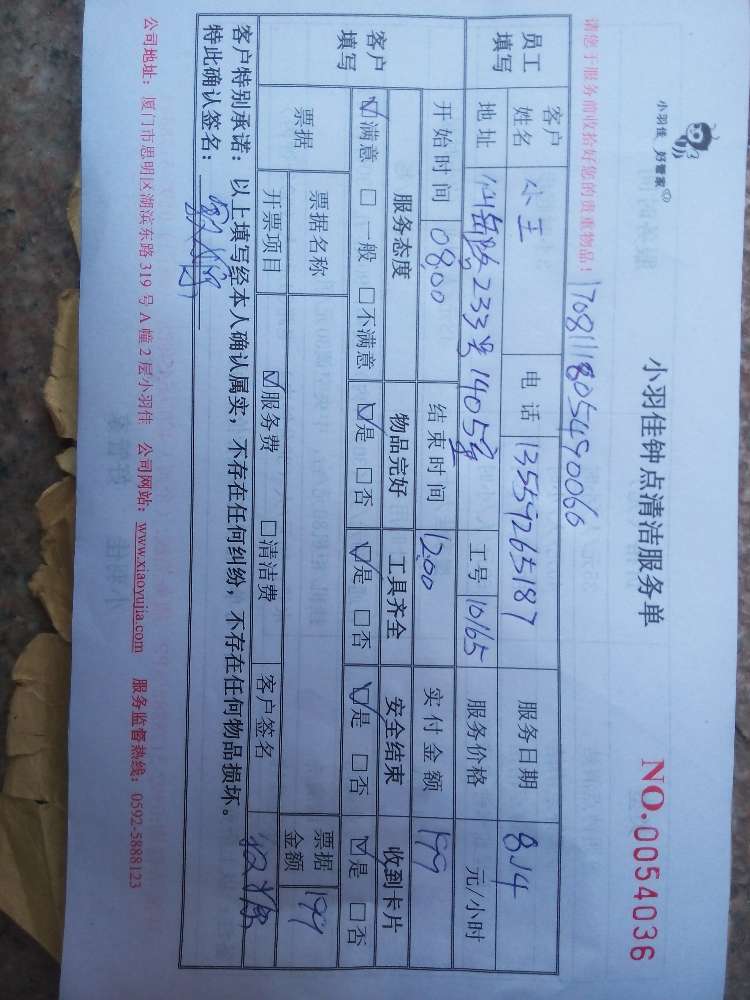 小羽佳 好管家
小羽佳钟点清洁服务单
NO.0054036
请您于服务前收拾好您的贵重物品！
1708111805490066
员工填写 客户姓名 小王 电话 13559265187 服务日期 8.14
地址 仙岳路233号1405室 工号 10165 服务价格 元/小时
开始时间 08:00 结束时间 12:00 实付金额 199
客户填写 服务态度 物品完好 工具齐全 安全结束 收到卡片
☑满意 □一般 □不满意 ☑是 □否 ☑是 □否 ☑是 □否 ☑是 □否
票据 票据名称 票据金额 199
开票项目 ☑服务费 □清洁费 客户签名
客户特别承诺：以上填写经本人确认属实，不存在任何纠纷，不存在任何物品损坏。
特此确认签名：
公司地址：厦门市思明区湖滨东路 319 号 A 幢 2 层小羽佳 公司网站：www.xiaoyujia.com 服务监督热线：0592-5888123